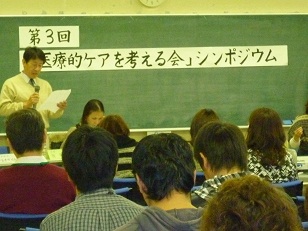 第3回
「医療的ケアを考える会」シンポジウム